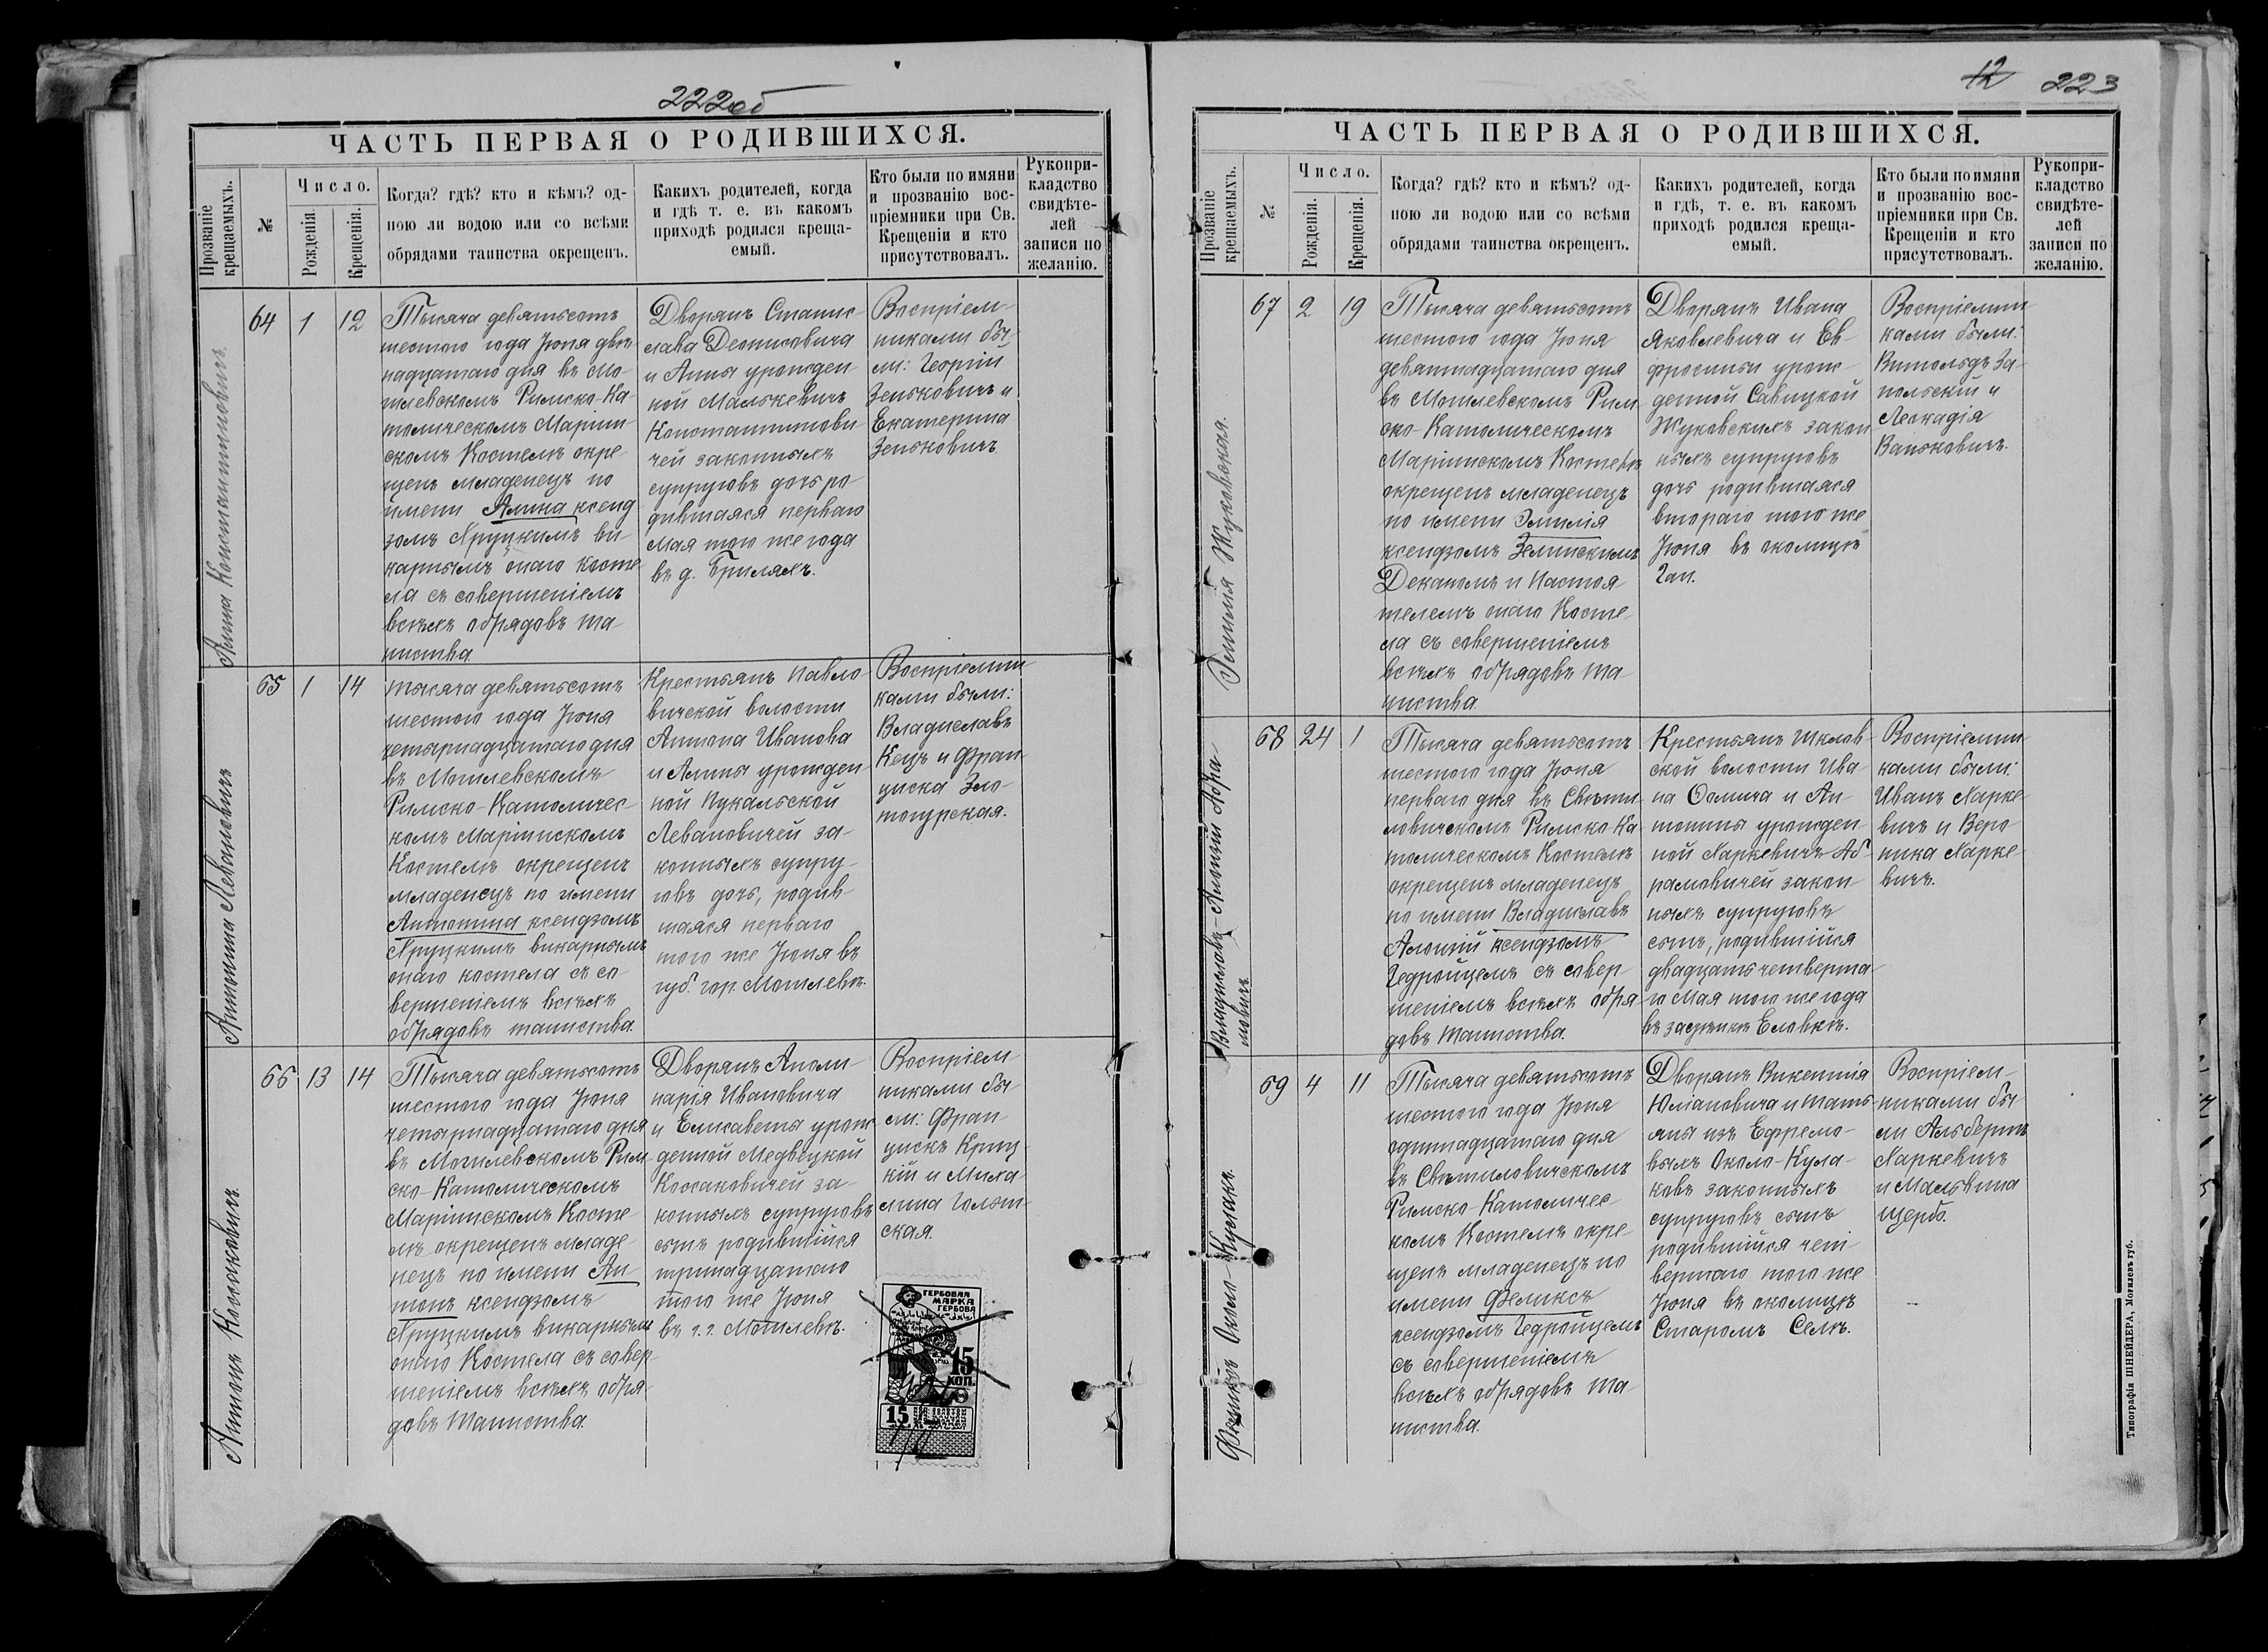 222об
ЧАСТЬ ПЕРВАЯ О РОДИВШИХСЯ.
Прозваніе крещаемыхъ.
№
Число.
Рожденія.
Крещенія.
Когда? гдѣ? кто и кѣмъ? од-
ною ли водою или со всѣми
обрядами таинства окрещенъ.
Какихъ родителей, когда
и гдѣ т. е. въ какомъ
приходѣ родился креща-
емый.
Кто были по имяни
и прозванію вос-
пріемники при Св.
Крещеніи и кто
присутствовалъ.
Рукопри-
кладство
свидѣте-
лей
записи по
желанію.
Алина Константиновичъ
64 1 12
Тысяча девятьсотъ
шестого года Іюня две-
надцатаго дня въ Мо-
гилевскомъ Римско-Ка-
толическомъ Маріин-
скомъ Костелѣ окре-
щенъ младенецъ по
имени Алина ксенд
зомъ Яруцкимъ ви-
карнымъ онаго косте
ла съ совершеніемъ
всѣхъ обрядовъ та-
инства.
Дворянъ Станис-
лава Деонисовича
и Анны урожден
ной Малькевичъ
Константинови-
чей законныхъ
супруговъ дочь ро
дившаяся перваго
Мая того же года
въ д. Бриляхъ.
Воспріем-
никами бы-
ли: Георгій
Зеньковичъ и
Екатерина
Зеньковичъ
Антонина Левановичъ
65 1 14
Тысяча девятьсотъ
шестого года Іюня
четырнадцатаго дня
въ Могилевскомъ
Римско-Католичес-
комъ Маріинскомъ
Костелѣ окрещенъ
младенецъ по имени
Антонина ксендзомъ
Яруцкимъ викарнымъ
онаго костела съ со-
вершеніемъ всѣхъ
обрядовъ таинства.
Крестьянъ Павло
вичской волости
Антона Иванова
и Алины урожден
ной Пукальской
Левановичей за-
конныхъ супру-
говъ дочь, родив
шаяся перваго
того же Іюня въ
губ. гор. Могилевѣ.
Воспріемни
ками были:
Владиславъ
Кецъ и Фран
циска Зло-
тогурская.
Антонъ Коссаковичъ
66 13 14
Тысяча девятьсотъ
шестого года Іюня
четырнадцатаго дня
въ Могилевскомъ Рим-
ско-Католическомъ
Маріинскомъ Косте-
лѣ окрещенъ младе-
нецъ по имени Ан
тонъ ксендзомъ
Яруцкимъ викарнымъ
онаго Костела съ совер
шеніемъ всѣхъ обря-
довъ Таинства.
Дворянъ Аполи-
нарія Ивановича
и Елисаветы урож
денной Медвецкой
Коссаковичей за-
конныхъ супруговъ
сынъ родившійся
тринадцатаго
того же Іюня
въ г. г. Могилевѣ.
Воспріем
никами бы-
ли: Фран
цискъ Криц-
кій и Миха-
лина Голын-
ская.
ГЕРБОВАЯ
МАРКА
ГЕРБОВА
15
КОП.
15
12 223
ЧАСТЬ ПЕРВАЯ О РОДИВШИХСЯ.
Прозваніе крещаемыхъ.
№
Число.
Рожденія.
Крещенія.
Когда? гдѣ? кто и кѣмъ? од-
ною ли водою или со всѣми
обрядами таинства окрещенъ.
Какихъ родителей, когда
и гдѣ, т. е. въ какомъ
приходѣ родился креща-
емый.
Кто были по имяни
и прозванію вос-
пріемники при Св.
Крещеніи и кто
присутствовалъ.
Рукопри-
кладство
свидѣте-
лей
записи по
желанію.
Эмилія Жуковская.
67 2 19
Тысяча девятьсотъ
шестого года Іюня
девятнадцатаго дня
въ Могилевскомъ Рим
ско-Католическомъ
Маріинскомъ Костелѣ
окрещенъ младенецъ
по имени Эмилія
ксендзомъ Зелинскимъ
Деканомъ и Настоя
телемъ онаго Косте-
ла съ совершеніемъ
всѣхъ обрядовъ та-
инства.
Дворянъ Ивана
Яковлевича и Ев-
фросиньи урож-
денной Савицкой
Жуковскихъ закон
ныхъ супруговъ
дочь родившаяся
второго того же
Іюня въ околицѣ
Гаи.
Воспріемни
ками были:
Витольдъ За-
польскій и
Леокадія
Ваньковичъ.
Владиславъ-Алоизій Абра-
мовичъ
68 24 1
Тысяча девятьсотъ
шестого года Іюня
перваго дня въ Свѣти
ловичскомъ Римско-Ка
толическомъ Костелѣ
окрещенъ младенецъ
по имени Владиславъ
Алоизій ксендзомъ
Гедройцемъ съ совер
шеніемъ всѣхъ обря
довъ Таинства.
Крестьянъ Шклов
ской волости Ива
на Фомича и Ан
тонины урожден
ной Харкевичъ Аб-
рамовичей закон-
ныхъ супруговъ
сынъ, родившійся
двадцать четверта-
го Мая того же года
въ застѣнкѣ Еловкѣ.
Воспріемни
ками были:
Иванъ Харке
вичъ и Веро-
ника Харке
вичъ.
Феликсъ Около-Кулакъ.
69 4 11
Тысяча девятьсотъ
шестого года Іюня
одиннадцатаго дня
въ Свѣтиловичскомъ
Римско-Католичес-
комъ Костелѣ окре-
щенъ младенецъ по
имени Феликсъ
ксендзомъ Гедройцемъ
съ совершеніемъ
всѣхъ обрядовъ та-
инства.
Дворянъ Викентія
Юліановича и Тать-
яны изъ Ефремо-
выхъ Около-Кула-
ковъ законныхъ
супруговъ сынъ
родившійся чет-
вертаго того же
Іюня въ околицѣ
Старомъ Селѣ.
Воспріем-
никами бы-
ли Альбертъ
Харкевичъ
и Мальвина
Щербо.
Типографія ШНЕЙДЕРА, Могилевъ губ.